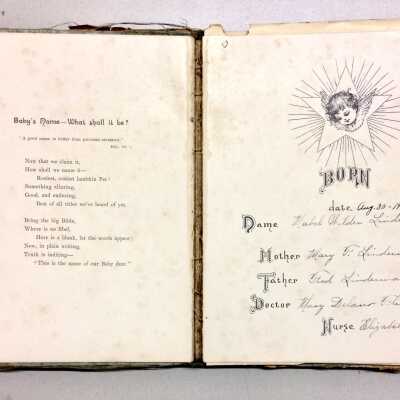 Baby's Name—What shall it be?
"A good name is better than precious ointment."
Now that we claim it,
How shall we name it—
Rosiest, cosiest lambkin Pet?
Something alluring,
Good, and enduring,
Best of all titles we've heard of yet.
Bring the big Bible,
Where is no libel,
Here is a blank, let the words appear;
Now, in plain writing,
Truth is inditing—
"This is the name of our Baby dear."
BORN
date Aug. 30 - 19
Name Wilden
Mother Mary T.
Father Fred
Doctor Mary Delano
Nurse Elizab